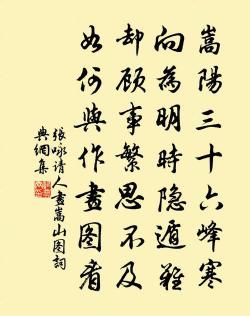 嵩陽三十六峰寒
向為明時隐遁難
却顧事繁思不及
如何與作畫图看
張咏请人畫嵩山图詞
典網集